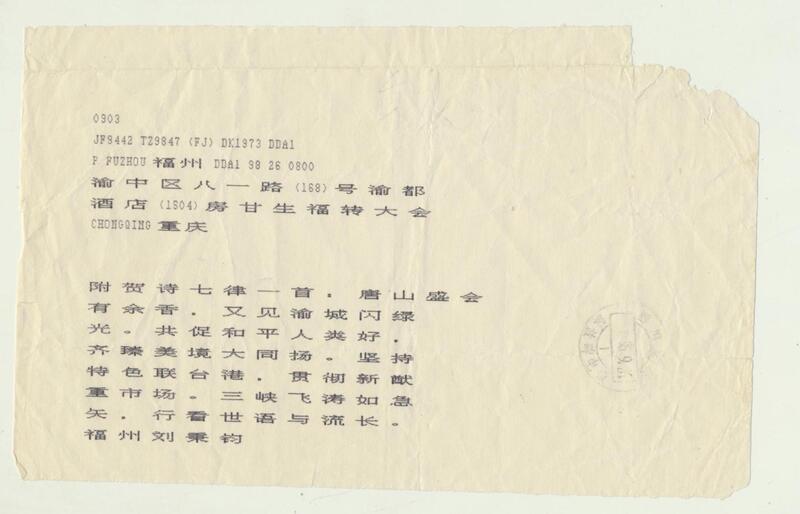 0903
JF9442 TZ9847 (FJ) DK1973 DDA1
P FUZHOU 福州 DDA1 98 26 0800
渝中区八一路(168)号渝都
酒店(1604)房甘生福转大会
CHONGQING 重庆
附贺诗七律一首：唐山盛会
有余香，又见渝城闪绿
光。共促和平人类好，
齐臻美境大同扬。坚持
特色联台港，贯彻新猷
重市场。三峡飞涛如急
矢，行看世语与流长。
福州刘秉钧